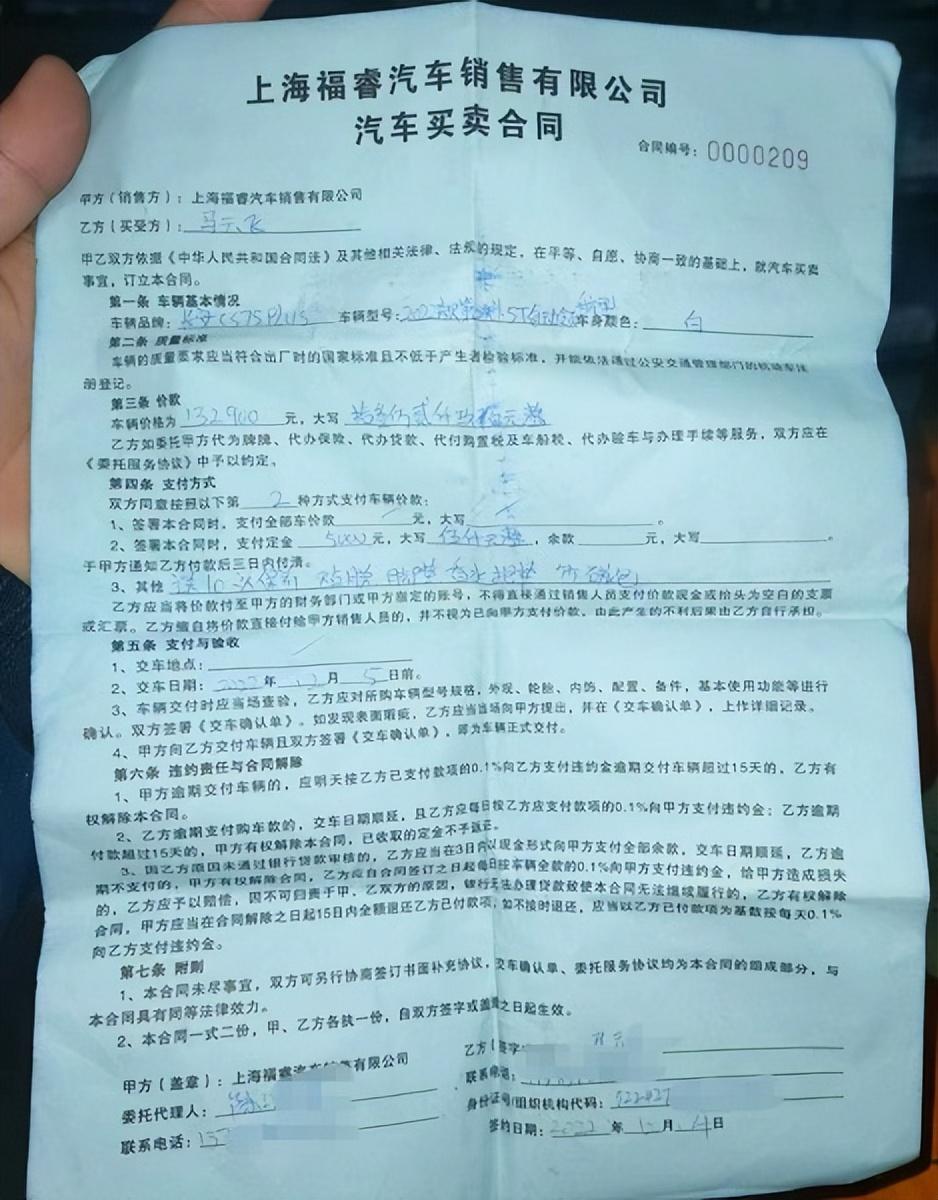 上海福睿汽车销售有限公司
汽车买卖合同
合同编号：0000209
甲方（销售方）：上海福睿汽车销售有限公司
乙方（买受方）：马云飞
甲乙双方依据《中华人民共和国合同法》及其他相关法律、法规的规定，在平等、自愿、协商一致的基础上，就汽车买卖
事宜，订立本合同。
第一条 车辆基本情况
车辆品牌：长安CS75PLUS 车辆型号：车身颜色：白
第二条 质量标准
车辆的质量要求应当符合出厂时的国家标准且不低于产生者检验标准，并能依法通过公安交通管理部门的机动车注
册登记。
第三条 价款
车辆价格为132900元，大写
乙方如委托甲方代为牌牌、代办保险、代办贷款、代付购置税及车船税、代办验车与办理手续等服务，双方应在
《委托服务协议》中予以约定。
第四条 支付方式
双方同意按照以下第2种方式支付车辆价款：
1、签署本合同时，支付全部车价款元，大写。
2、签署本合同时，支付定金5000元，大写伍仟元整，余款元，大写。
于甲方通知乙方付款后三日内付清。
3、其他 送10次保养
乙方应当将价款付至甲方的财务部门或甲方指定的账号，不得直接通过销售人员支付价款现金或抬头为空白的支票
或汇票。乙方擅自将价款直接付给甲方销售人员的，并不视为已向甲方支付价款，由此产生的不利后果由乙方自行承担。
第五条 支付与验收
1、交车地点：
2、交车日期：2022年12月5日前。
3、车辆交付时应当场查验，乙方应对所购车辆型号规格，外观、轮胎、内饰、配置、备件，基本使用功能等进行
确认。双方签署《交车确认单》。如发现表面瑕疵，乙方应当当场向甲方提出，并在《交车确认单》，上作详细记录。
4、甲方向乙方交付车辆且双方签署《交车确认单》，即为车辆正式交付。
第六条 违约责任与合同解除
1、甲方逾期交付车辆的，应明天按乙方已支付款项的0.1%向乙方支付违约金逾期交付车辆超过15天的，乙方有
权解除本合同。
2、乙方逾期支付购车款的，交车日期顺延，且乙方应每日按乙方应支付款项的0.1%向甲方支付违约金；乙方逾期
付款超过15天的，甲方有权解除本合同，已收取的定金不予返还。
3、因乙方原因未通过银行贷款审核的，乙方应当在3日内以现金形式向甲方支付全部余款，交车日期顺延，乙方逾
期不支付的，甲方有权解除合同，乙方应自合同签订之日起每日按车辆全款的0.1%向甲方支付违约金，给甲方造成损失
的，乙方应予以赔偿，因不可归责于甲、乙双方的原因，银行无法办理贷款致使本合同无法继续履行的，乙方有权解除
合同，甲方应当在合同解除之日起15日内全额退还乙方已付款项，如不按时退还，应当以乙方已付款项为基数按每天0.1%
向乙方支付违约金。
第七条 附则
1、本合同未尽事宜，双方可另行协商签订书面补充协议，交车确认单、委托服务协议均为本合同的组成部分，与
本合同具有同等法律效力。
2、本合同一式二份，甲、乙方各执一份，自双方签字或盖章之日起生效。
甲方（盖章）：上海福睿汽车销售有限公司
委托代理人：
联系电话：
乙方（签字
联系电话：
身份证号/组织机构代码：522427
签约日期：2022年12月4日